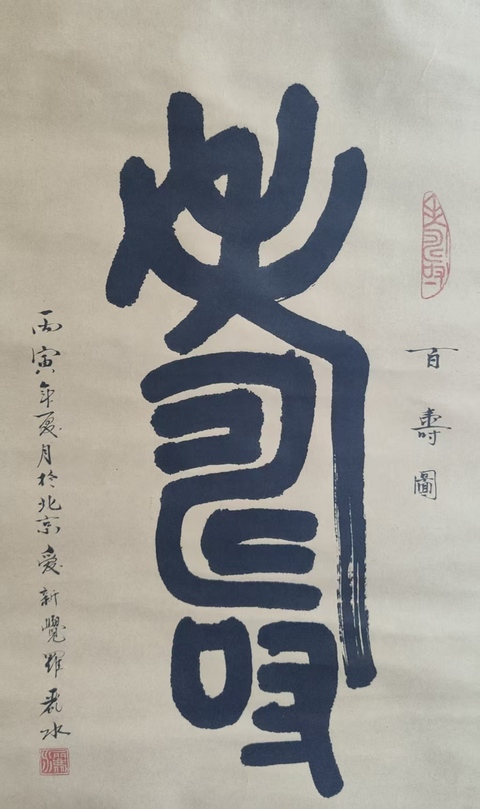 百壽圖
壽
丙寅年夏月於北京愛新覺羅水